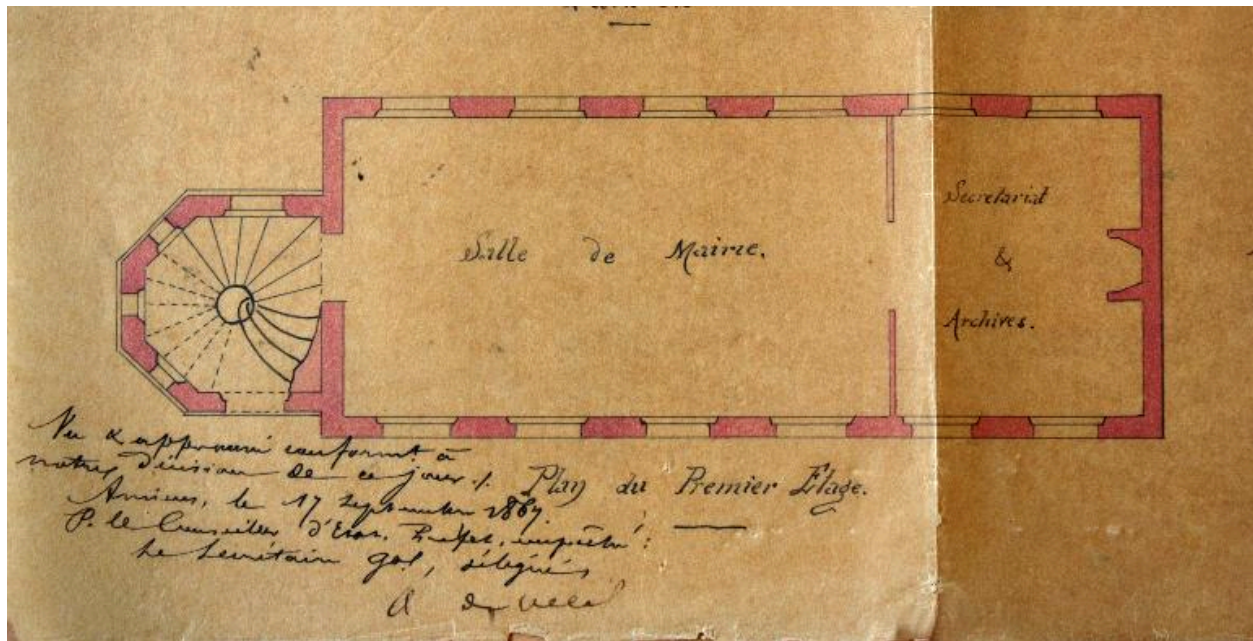 Salle de Mairie.
Secretariat
&
Archives.
Plan du Premier Étage.
Vu & approuvé conformt à
notre décision de ce jour ./.
Amiens, le 17 Septembre 1867
P. le Conseiller d'Etat, Préfet, empêché :
Le Secrétaire gal, délégué